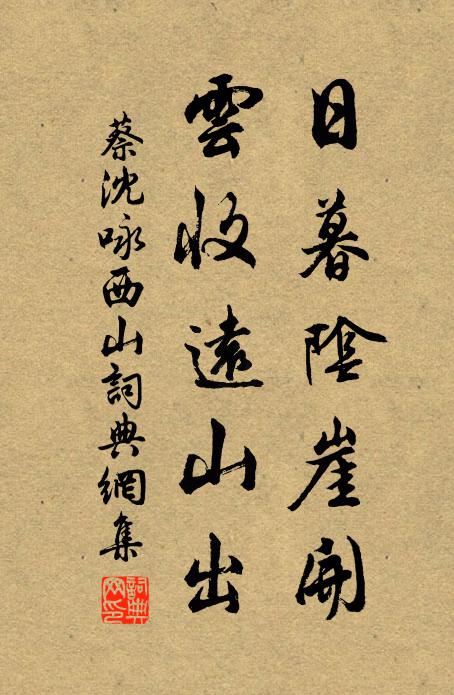 日暮陰崖開
雲收遠山出
蔡沈咏西山詞典網集
詞典網印